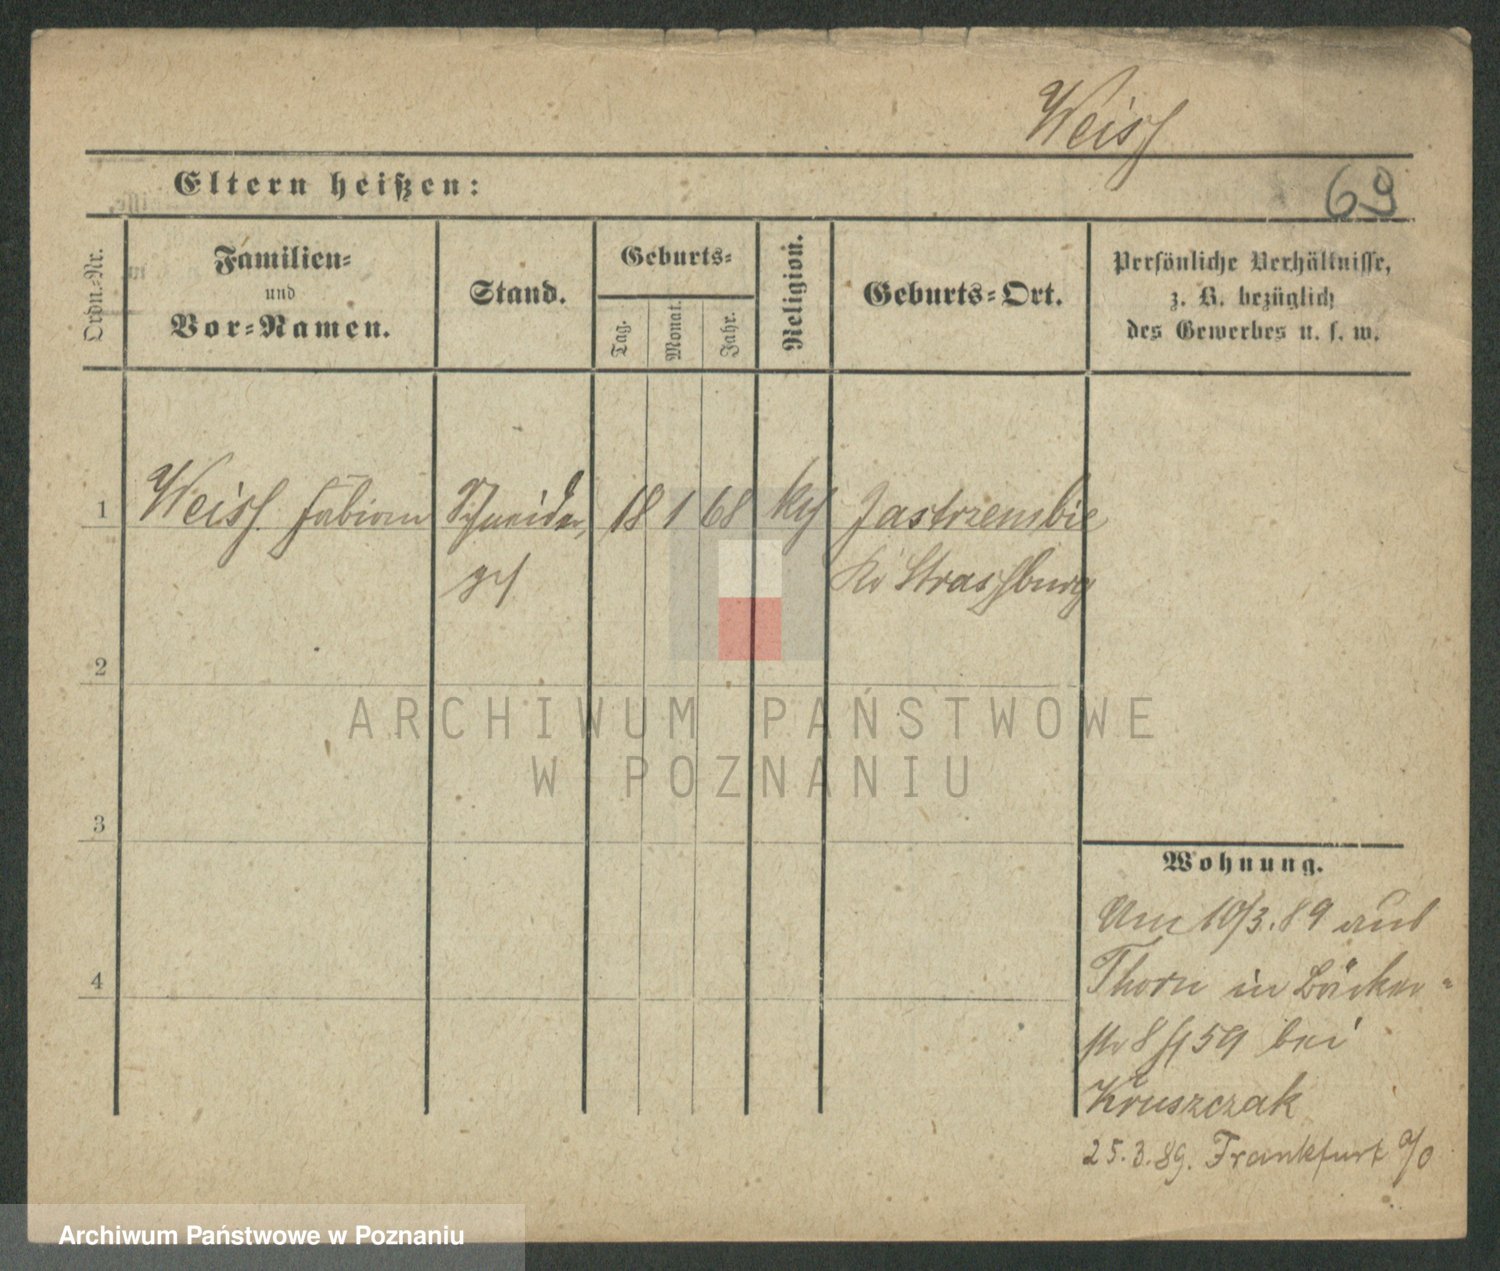 Weiss
Eltern heißen:
69
Ordn.-Nr.
Familien-
und
Vor-Namen.
Stand.
Geburts-
Tag.
Monat.
Jahr.
Religion.
Geburts-Ort.
Persönliche Verhältnisse,
z. B. bezüglich
des Gewerbes u. s. w.
1 Weiss Fabian Schneider, 18 1 68 kth Jastrzembie
ges Kr Strassburg
2
3
4
Wohnung.
Am 10/3.89 aus
Thorn in Bäcker-
str 8 bei
Kruszczak
25.3.89. Frankfurt a/o
ARCHIWUM PAŃSTWOWE
W POZNANIU
Archiwum Państwowe w Poznaniu